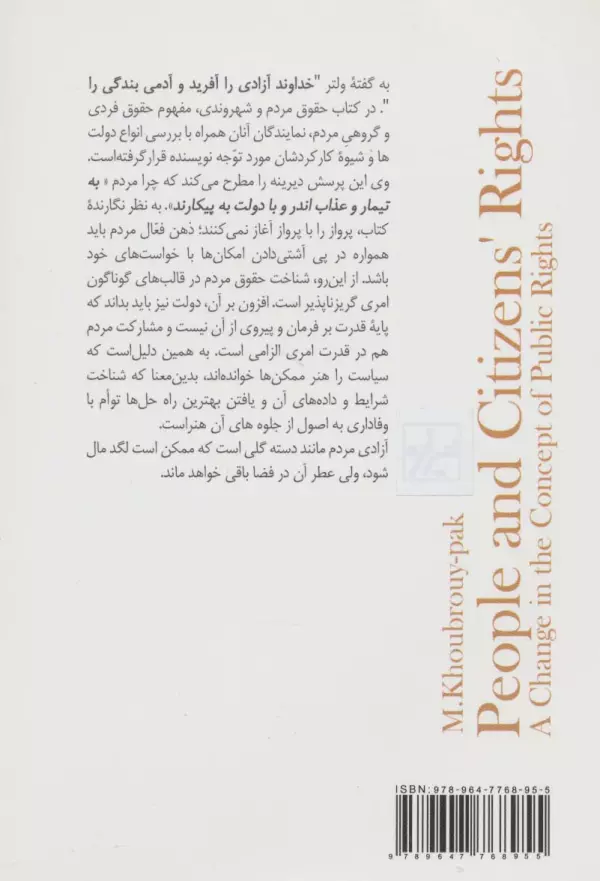 به گفتهٔ ولتر "خداوند آزادی را آفرید و آدمی بندگی را
". در کتاب حقوق مردم و شهروندی، مفهوم حقوق فردی
و گروهیِ مردم، نمایندگان آنان همراه با بررسی انواع دولت
ها و شیوهٔ کارکردشان مورد توجّه نویسنده قرارگرفته‌است.
وی این پرسش دیرینه را مطرح می‌کند که چرا مردم « به
تیمار و عذاب اندر و با دولت به پیکارند». به نظر نگارندهٔ
کتاب، پرواز را با پرواز آغاز نمی‌کنند؛ ذهن فعّال مردم باید
همواره در پی آشتی‌دادن امکان‌ها با خواست‌های خود
باشد. از این‌رو، شناخت حقوق مردم در قالب‌های گوناگون
امری گریزناپذیر است. افزون بر آن، دولت نیز باید بداند که
پایهٔ قدرت بر فرمان و پیروی از آن نیست و مشارکت مردم
هم در قدرت امری الزامی است. به همین دلیل‌است که
سیاست را هنر ممکن‌ها خوانده‌اند، بدین‌معنا که شناخت
شرایط و داده‌های آن و یافتن بهترین راه حل‌ها توأم با
وفاداری به اصول از جلوه های آن هنراست.
آزادی مردم مانند دسته گلی است که ممکن است لگد مال
شود، ولی عطر آن در فضا باقی خواهد ماند.
M.Khoubrouy-pak
People and Citizens' Rights
A Change in the Concept of Public Rights
ISBN:978-964-7768-95-5
9 789647 768955